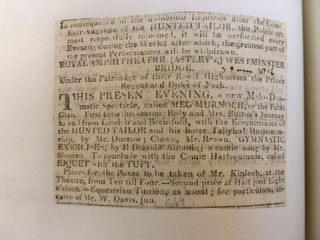 In consequence of the numerous Inquiries after the Comic
Extravaganza of the HUNTED TAILOR, the Public are
most respectfully informed, it will be performed every
Evening during the Week, after which, the greatest part of
the present Performances will be withdrawn.
ROYAL AMPHITHEATRE (ASTLEY's,) WESTMINSTER
BRIDGE.
Under the Patronage of their Royal Highnesses the Prince
Regent and Duke of York.
THIS PRESENT EVENING, a New Melo-Dra-
matic Spectacle, called MEG MURNOCH, or the
Glen. First time this season, Billy and Mrs. Button's Journey
to and from London and Brentford, with the Eccentricities of
the HUNTED TAILOR and his horse Tallyho! Horseman-
ship, by Mr. Ducrow; Clown, Mr. Brown. GYMNASTIC
EXERCISES, by Il Diavolo Antonio; a comic song by Mr.
Sloman. To conclude with the Comic Harlequinade, called
RIQUET with the TUFT.
Places for the Boxes to be taken of Mr. Kinloch, at the
Theatre, from Ten till Four.—Second price at Half past Eight
o'clock.—Equestrian Tuition, as usual; for particulars, en-
quire of Mr. W. Davis, jun.